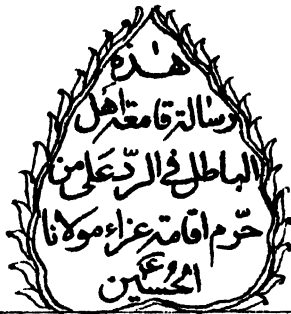 هـٰذه
رسالة قامعة اهل
الباطل في الردّ على من
حرّم اقامة عزاء مولانا
الحُسين ع